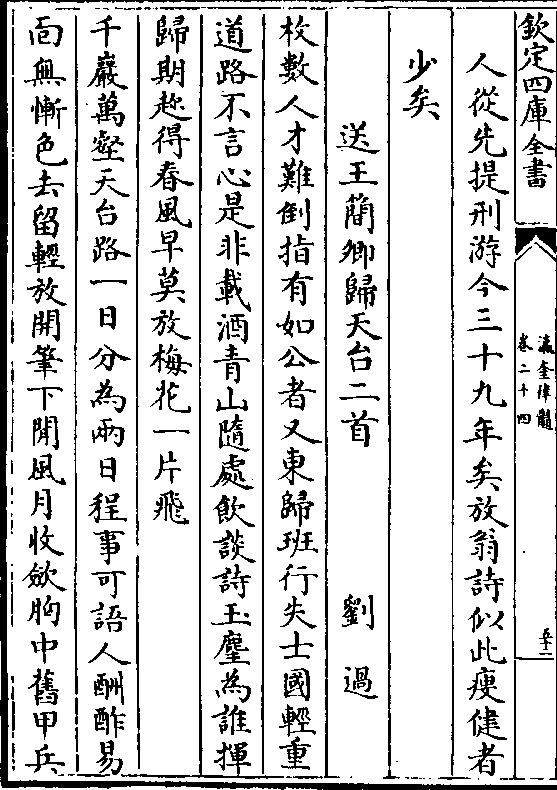 欽定四庫全書
瀛奎律髓
卷二十四
五十二
人從先提刑游今三十九年矣放翁詩似此瘦健者
少矣
送王簡卿歸天台二首 劉過
枚數人才難倒指有如公者又東歸班行失士國輕重
道路不言心是非載酒青山隨處飲談詩玉麈為誰揮
歸期趂得春風早莫放梅花一片飛
千巖萬壑天台路一日分為兩日程事可語人酬酢易
面無慚色去留輕放開筆下閒風月收斂胸中舊甲兵